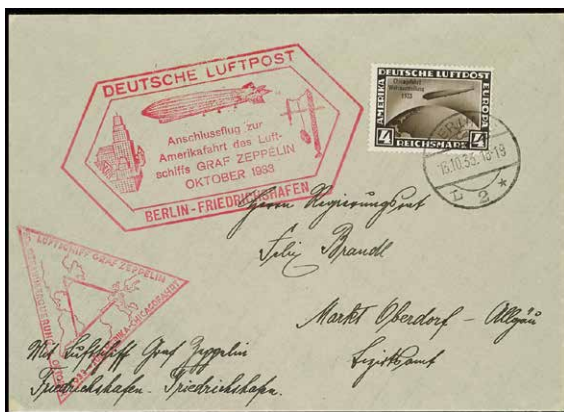 DEUTSCHE LUFTPOST
Anschlussflug zur
Amerikafahrt des Luft-
schiffs GRAF ZEPPELIN
OKTOBER 1933
BERLIN-FRIEDRICHSHAFEN
DEUTSCHE LUFTPOST
AMERIKA
EUROPA
Chicagofahrt
Weltausstellung
1933
4 REICHSMARK 4
BERLIN
L 2 *
Herrn Regierungsrat
Felix Brandl
Markt Oberdorf - Allgäu
Bezirksamt
LUFTSCHIFF GRAF ZEPPELIN
Mit Luftschiff Graf Zeppelin
Friedrichshafen - Friedrichshafen.